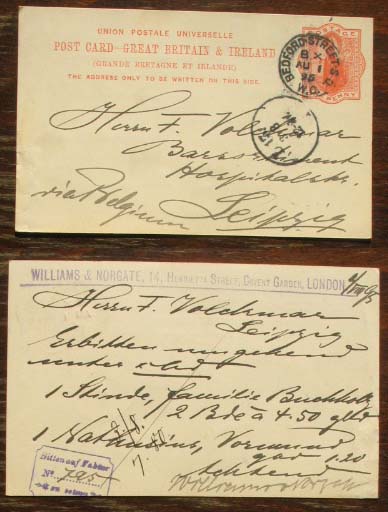 UNION POSTALE UNIVERSELLE
POST CARD—GREAT BRITAIN & IRELAND
(GRANDE BRETAGNE ET IRLANDE)
THE ADDRESS ONLY TO BE WRITTEN ON THIS SIDE.
BEDFORD STREET
AU 1
W.C.
PENNY
Herrn F. Volckmar
Hospitalstr.
via Belgium
Leipzig
WILLIAMS & NORGATE, 14, HENRIETTA STREET, COVENT GARDEN, LONDON
Herrn F. Volckmar
Leipzig
Erbitten umgehend
unter
1 Stinde, familie Buchholz
2 Bde à 4.50 gbd
1 Nathusius, Vormund
gbd 1.20
Williams & Norgate
Nº. 795
7.40